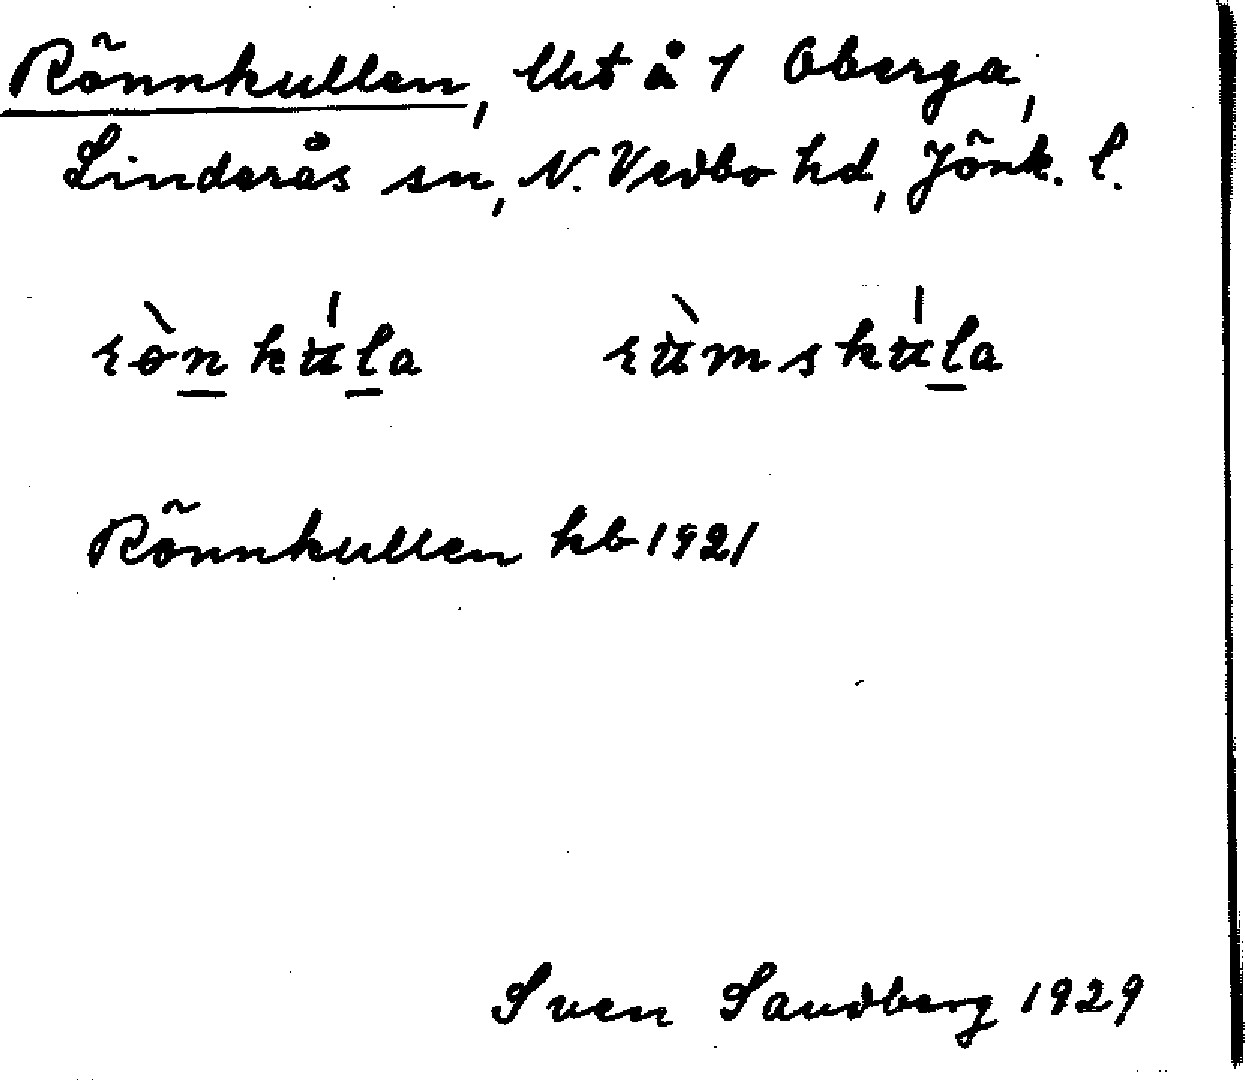 Rönnkullen, lht å 1 Oberga,
Linderås sn, N. Vedbo hd, Jönk. l.
rònkúla rùmskúla
Rönnkullen hb 1921
Sven Sandberg 1929